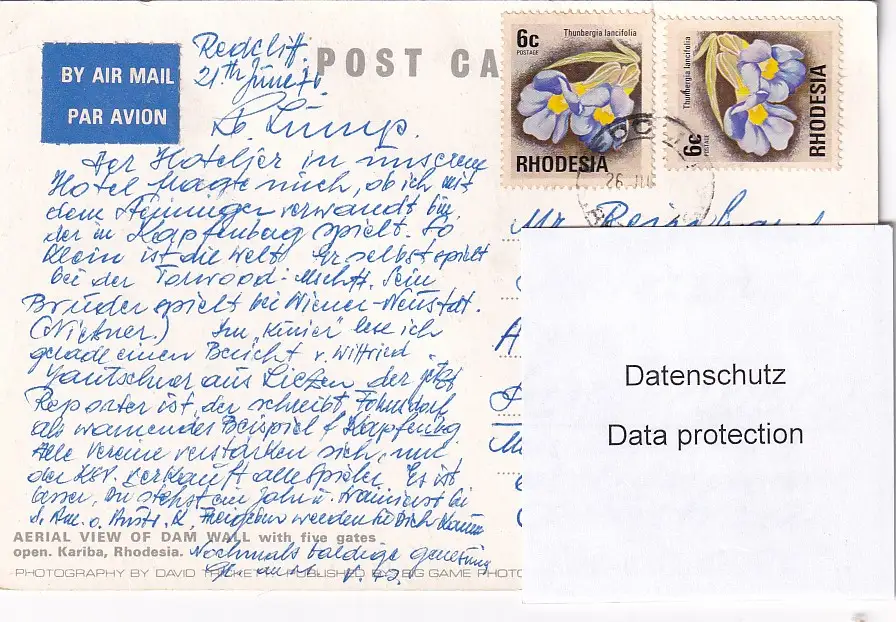 BY AIR MAIL
PAR AVION
POST CA
Redcliff
21th June
Lb. Lump.
Der Hotelier in unserem
Hotel fragte mich, ob ich mit
dem verwandt bin,
der in Kapfenberg spielt. So
klein ist die Welt. Er selbst spielt
bei der Torwood-Mschft. Sein
Bruder spielt bei Wiener-Neustadt.
Im "Kurier" lese ich
gerade einen Bericht v. Wilfried
aus Liezen, der jetzt
Reporter ist, der schreibt, Fohnsdorf
als warnendes Beispiel f. Kapfenbg.
Alle Vereine verstärken sich, nur
der KSV. verkauft alle Spieler. Es ist
besser, Du stehst ein Jahr u. trainierst bei
Freigeben werden sie Dich kaum
Nochmals baldige Genesung
AERIAL VIEW OF DAM WALL with five gates
open. Kariba, Rhodesia.
PHOTOGRAPHY BY DAVID PUBLISHED BY BIG GAME PHOTO
6c
POSTAGE
Thunbergia lancifolia
RHODESIA
6c
POSTAGE
Thunbergia lancifolia
RHODESIA
26
Mr.
Datenschutz
Data protection